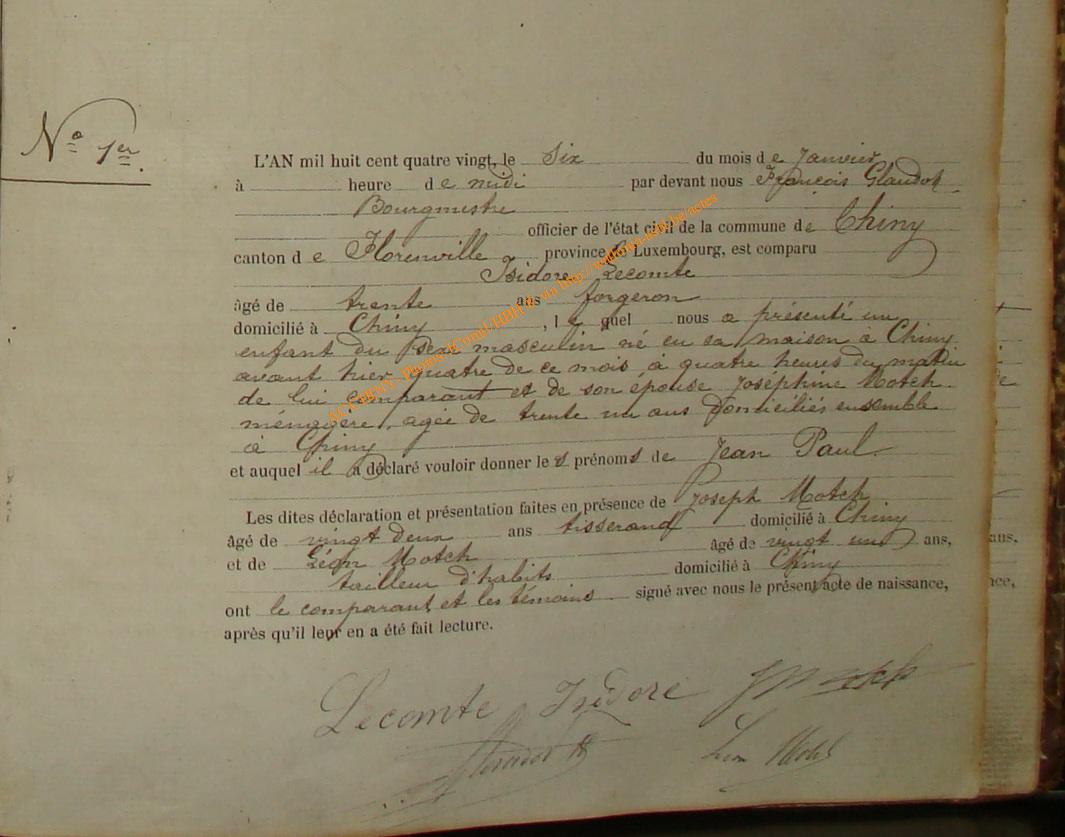 N° 1er.
L'AN mil huit cent quatre vingt, le Six du mois de Janvier
à heure de midi par devant nous François Glaudot
Bourgmestre
officier de l'état civil de la commune de Chiny
canton de Florenville province de Luxembourg, est comparu
Isidore Lecomte
âgé de trente ans forgeron
domicilié à Chiny, lequel nous a présenté un
enfant du sexe masculin né en sa maison à Chiny
avant hier quatre de ce mois à quatre heures du matin
de lui comparant et de son épouse Joséphine Motch
ménagère, agée de trente un ans domiciliés ensemble
à Chiny
et auquel il a déclaré vouloir donner les prénoms de Jean Paul
Les dites déclaration et présentation faites en présence de Joseph Motch
âgé de vingt deux ans tisserand domicilié à Chiny
et de Léon Motch âgé de vingt un ans,
tailleur d'habits domicilié à Chiny
ont le comparant et les témoins signé avec nous le présent acte de naissance,
après qu'il leur en a été fait lecture.
Lecomte Isidore
Glaudot
Léon Motch